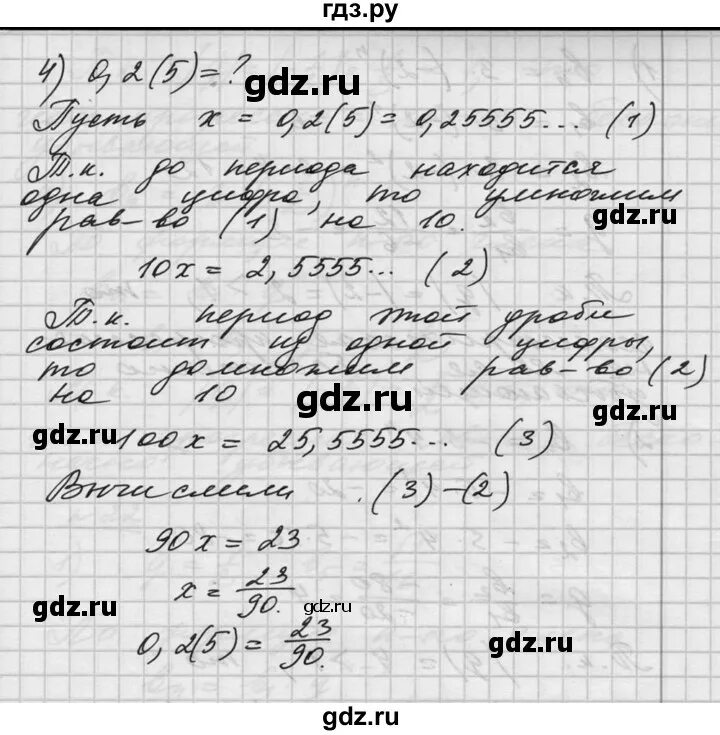 гдз.ру
4) 0,2(5)=?
gdz.ru
Пусть x = 0,2(5) = 0,25555... (1)
Т.к. до периода находится
одна цифра, то умножим
рав-во (1) на 10.
gdz.ru
10x = 2,5555... (2)
Т.к. период этой дроби
состоит из одной цифры,
то домножим рав-во (2)
на 10
gdz.ru
gdz.ru
gdz.ru
100x = 25,5555... (3)
Вычислили (3)-(2)
90x = 23
x = 23/90.
gdz.ru
gdz.ru
0,2(5) = 23/90.
gdz.ru
gdz.ru